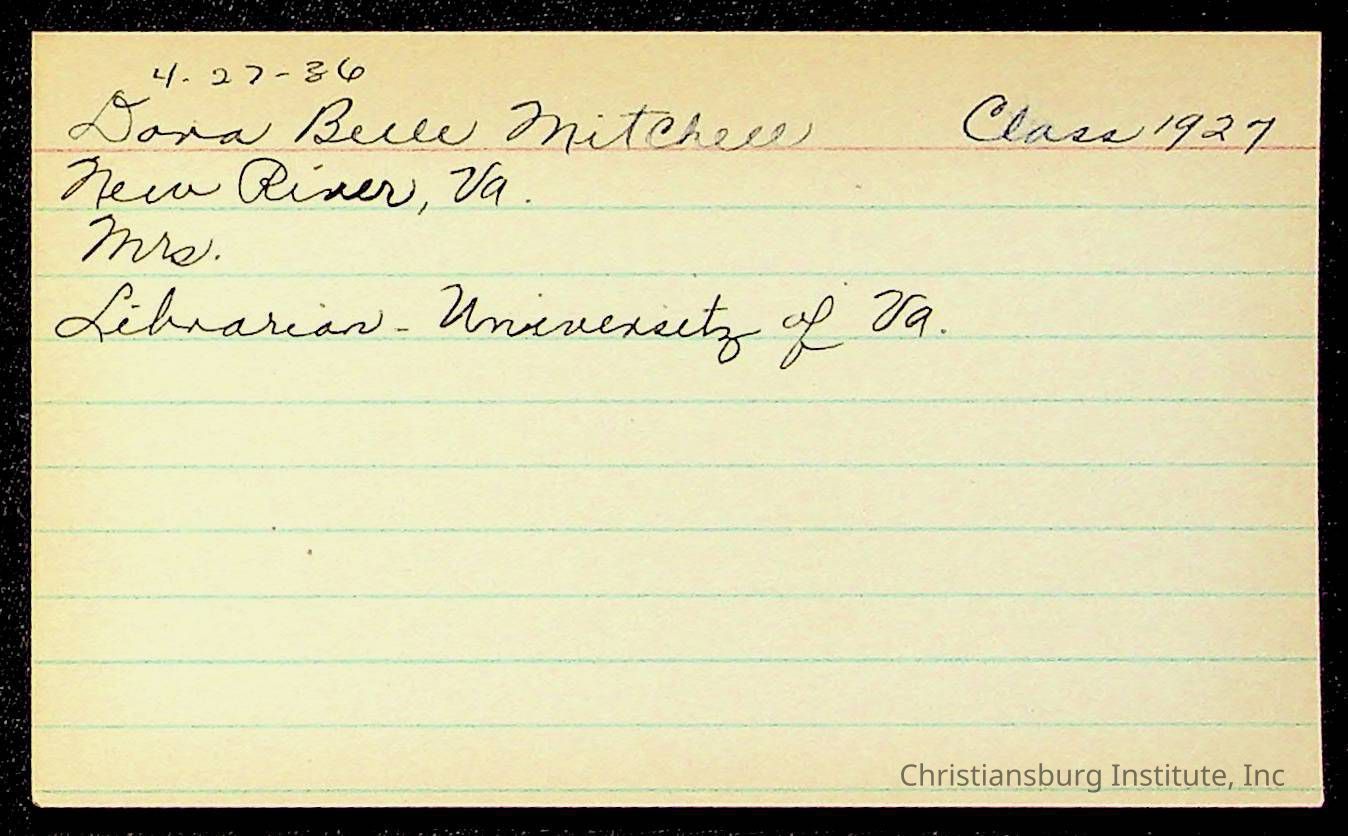 4-27-36
Dora Belle Mitchell Class 1927
New River, Va.
Mrs.
Librarian - University of Va.
Christiansburg Institute, Inc